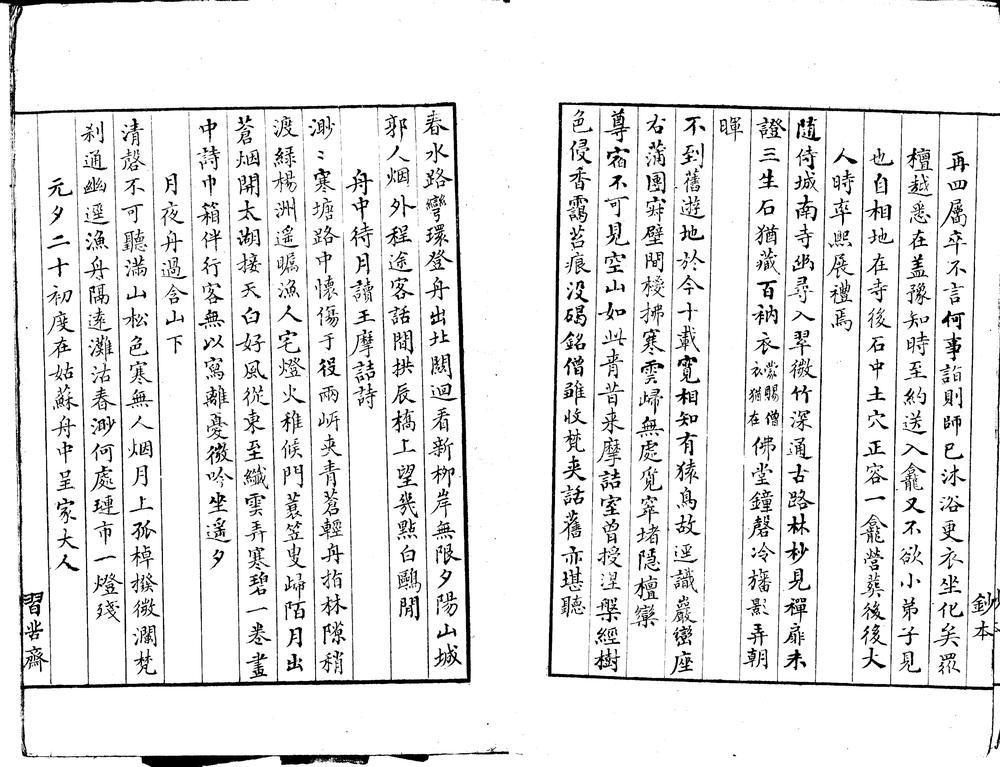 再四屬卒不言何事詣則師已沐浴更衣坐化矣眾
檀越悉在蓋豫知時至約送入龕又不欲小弟子見
也自相地在寺後石中土穴正容一龕營葬後後大
人時率熙展禮焉
隨侍城南寺幽尋入翠微竹深通古路林杪見禪扉未
證三生石猶藏百衲衣蒙賜僧衣猶在佛堂鐘磬冷旛影弄朝
暉
不到舊遊地於今十載寬相知有猿鳥故逕識巖巒座
右蒲團穿壁間椶拂寒雲歸無處覓窣堵隱檀欒
尊宿不可見空山如此青昔来摩詰室曾授湼槃經樹
色侵香靄苔痕没碣銘僧雖收梵夾話舊亦堪聽
鈔本
春水路彎環登舟出北關迴看新柳岸無限夕陽山城
郭人烟外程途客話間拱辰橋上望幾點白鷗閒
舟中待月讀王摩詰詩
渺〻寒塘路中懷傷于役兩岍夾青蒼輕舟指林隙稍
渡綠楊洲遥矚漁人宅燈火稚候門蓑笠叟歸陌月出
蒼烟開太湖接天白好風從東至纖雲弄寒碧一卷畫
中詩巾箱伴行客無以寫離憂微吟坐遥夕
月夜舟過含山下
清磬不可聽滿山松色寒無人烟月上孤棹撥微瀾梵
刹通幽逕漁舟隔遠灘沽春渺何處璉市一燈殘
元夕二十初度在姑蘇舟中呈家大人
習㫖齋